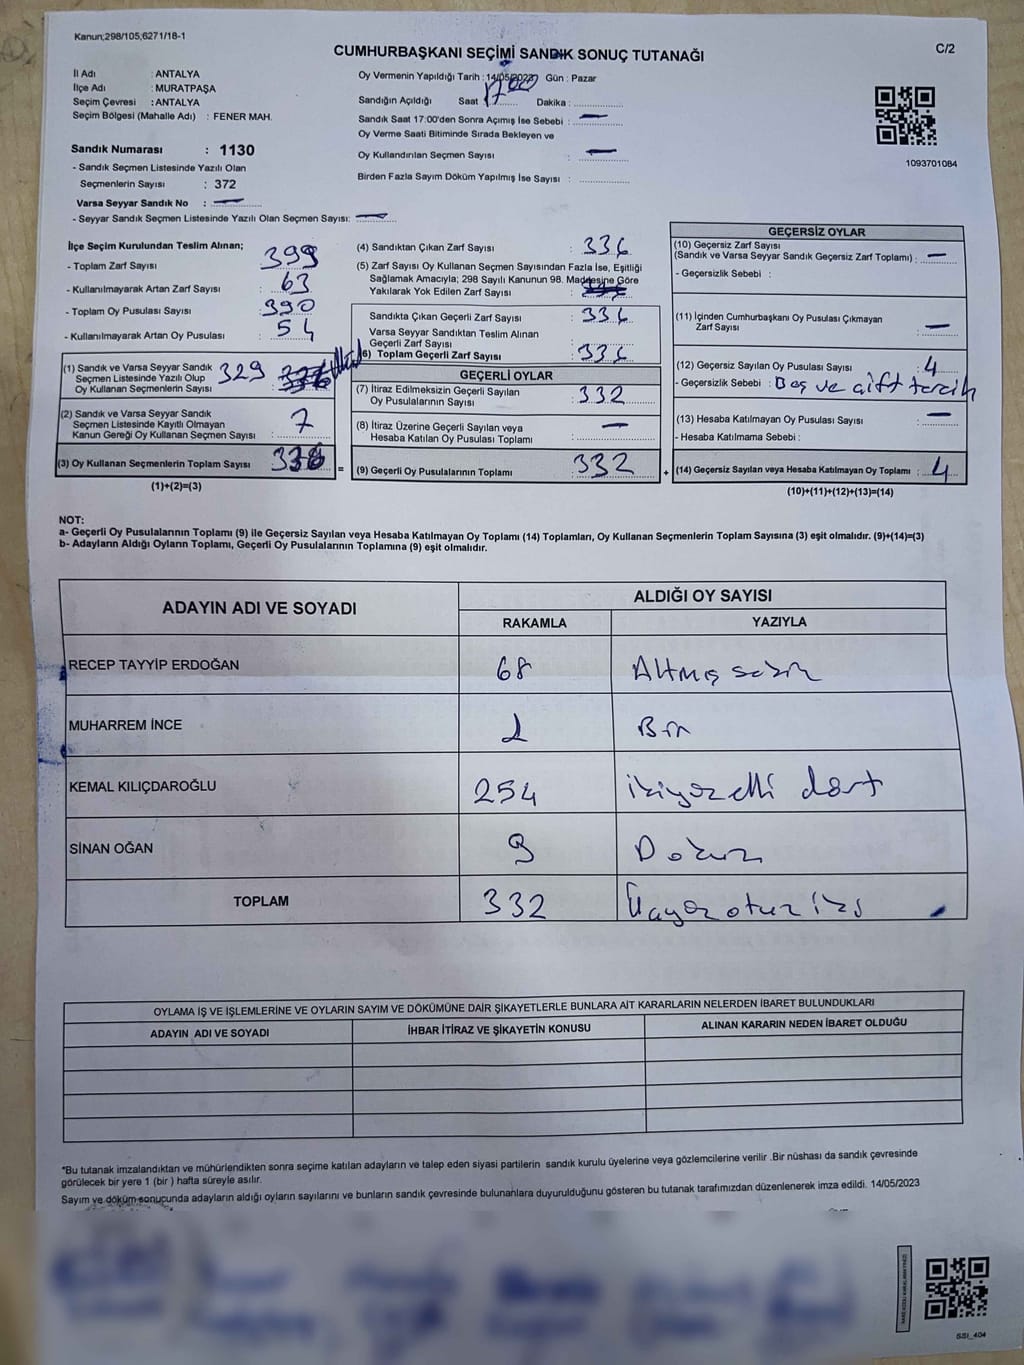 Kanun;298/105,6271/18-1
C/2
CUMHURBAŞKANI SEÇİMİ SANDIK SONUÇ TUTANAĞI
İl Adı : ANTALYA
İlçe Adı : MURATPAŞA
Seçim Çevresi : ANTALYA
Seçim Bölgesi (Mahalle Adı) : FENER MAH.
Sandık Numarası : 1130
- Sandık Seçmen Listesinde Yazılı Olan
Seçmenlerin Sayısı : 372
Varsa Seyyar Sandık No : —
- Seyyar Sandık Seçmen Listesinde Yazılı Olan Seçmen Sayısı: —
Oy Vermenin Yapıldığı Tarih : 14/05/2023 Gün : Pazar
Sandığın Açıldığı Saat 17:00 Dakika :
Sandık Saat 17:00'den Sonra Açımış İse Sebebi : —
Oy Verme Saati Bitiminde Sırada Bekleyen ve
Oy Kullandırılan Seçmen Sayısı : —
Birden Fazla Sayım Döküm Yapılmış İse Sayısı :
1093701084
İlçe Seçim Kurulundan Teslim Alınan;
- Toplam Zarf Sayısı : 399
- Kullanılmayarak Artan Zarf Sayısı : 63
- Toplam Oy Pusulası Sayısı : 390
- Kullanılmayarak Artan Oy Pusulası : 54
(1) Sandık ve Varsa Seyyar Sandık
Seçmen Listesinde Yazılı Olup
Oy Kullanan Seçmenlerin Sayısı : 329
(2) Sandık ve Varsa Seyyar Sandık
Seçmen Listesinde Kayıtlı Olmayan
Kanun Gereği Oy Kullanan Seçmen Sayısı : 7
(3) Oy Kullanan Seçmenlerin Toplam Sayısı : 336
(1)+(2)=(3)
=
(4) Sandıktan Çıkan Zarf Sayısı : 336
(5) Zarf Sayısı Oy Kullanan Seçmen Sayısından Fazla İse, Eşitliği
Sağlamak Amacıyla; 298 Sayılı Kanunun 98. Maddesine Göre
Yakılarak Yok Edilen Zarf Sayısı :
Sandıkta Çıkan Geçerli Zarf Sayısı : 336
Varsa Seyyar Sandıktan Teslim Alınan
Geçerli Zarf Sayısı :
(6) Toplam Geçerli Zarf Sayısı : 336
GEÇERLİ OYLAR
(7) İtiraz Edilmeksizin Geçerli Sayılan
Oy Pusulalarının Sayısı : 332
(8) İtiraz Üzerine Geçerli Sayılan veya
Hesaba Katılan Oy Pusulası Toplamı : —
(9) Geçerli Oy Pusulalarının Toplamı : 332
+
GEÇERSİZ OYLAR
(10) Geçersiz Zarf Sayısı
(Sandık ve Varsa Seyyar Sandık Geçersiz Zarf Toplamı) : —
- Geçersizlik Sebebi :
(11) İçinden Cumhurbaşkanı Oy Pusulası Çıkmayan
Zarf Sayısı : —
(12) Geçersiz Sayılan Oy Pusulası Sayısı : 4
- Geçersizlik Sebebi : Boş ve çift tercih
(13) Hesaba Katılmayan Oy Pusulası Sayısı : —
- Hesaba Katılmama Sebebi :
(14) Geçersiz Sayılan veya Hesaba Katılmayan Oy Toplamı : 4
(10)+(11)+(12)+(13)=(14)
NOT:
a- Geçerli Oy Pusulalarının Toplamı (9) ile Geçersiz Sayılan veya Hesaba Katılmayan Oy Toplamı (14) Toplamları, Oy Kullanan Seçmenlerin Toplam Sayısına (3) eşit olmalıdır. (9)+(14)=(3)
b- Adayların Aldığı Oyların Toplamı, Geçerli Oy Pusulalarının Toplamına (9) eşit olmalıdır.
ADAYIN ADI VE SOYADI
ALDIĞI OY SAYISI
RAKAMLA YAZIYLA
RECEP TAYYİP ERDOĞAN 68 Altmış sekiz
MUHARREM İNCE 1 Bir
KEMAL KILIÇDAROĞLU 254 ikiyüzelli dört
SİNAN OĞAN 9 Dokuz
TOPLAM 332 Üçyüzotuz iki
OYLAMA İŞ VE İŞLEMLERİNE VE OYLARIN SAYIM VE DÖKÜMÜNE DAİR ŞİKAYETLERLE BUNLARA AİT KARARLARIN NELERDEN İBARET BULUNDUKLARI
ADAYIN ADI VE SOYADI İHBAR İTİRAZ VE ŞİKAYETİN KONUSU ALINAN KARARIN NEDEN İBARET OLDUĞU
*Bu tutanak imzalandıktan ve mühürlendikten sonra seçime katılan adayların ve talep eden siyasi partilerin sandık kurulu üyelerine veya gözlemcilerine verilir .Bir nüshası da sandık çevresinde
görülecek bir yere 1 (bir ) hafta süreyle asılır.
Sayım ve döküm sonucunda adayların aldığı oyların sayılarını ve bunların sandık çevresinde bulunanlara duyurulduğunu gösteren bu tutanak tarafımızdan düzenlenerek imza edildi. 14/05/2023
SSI_404